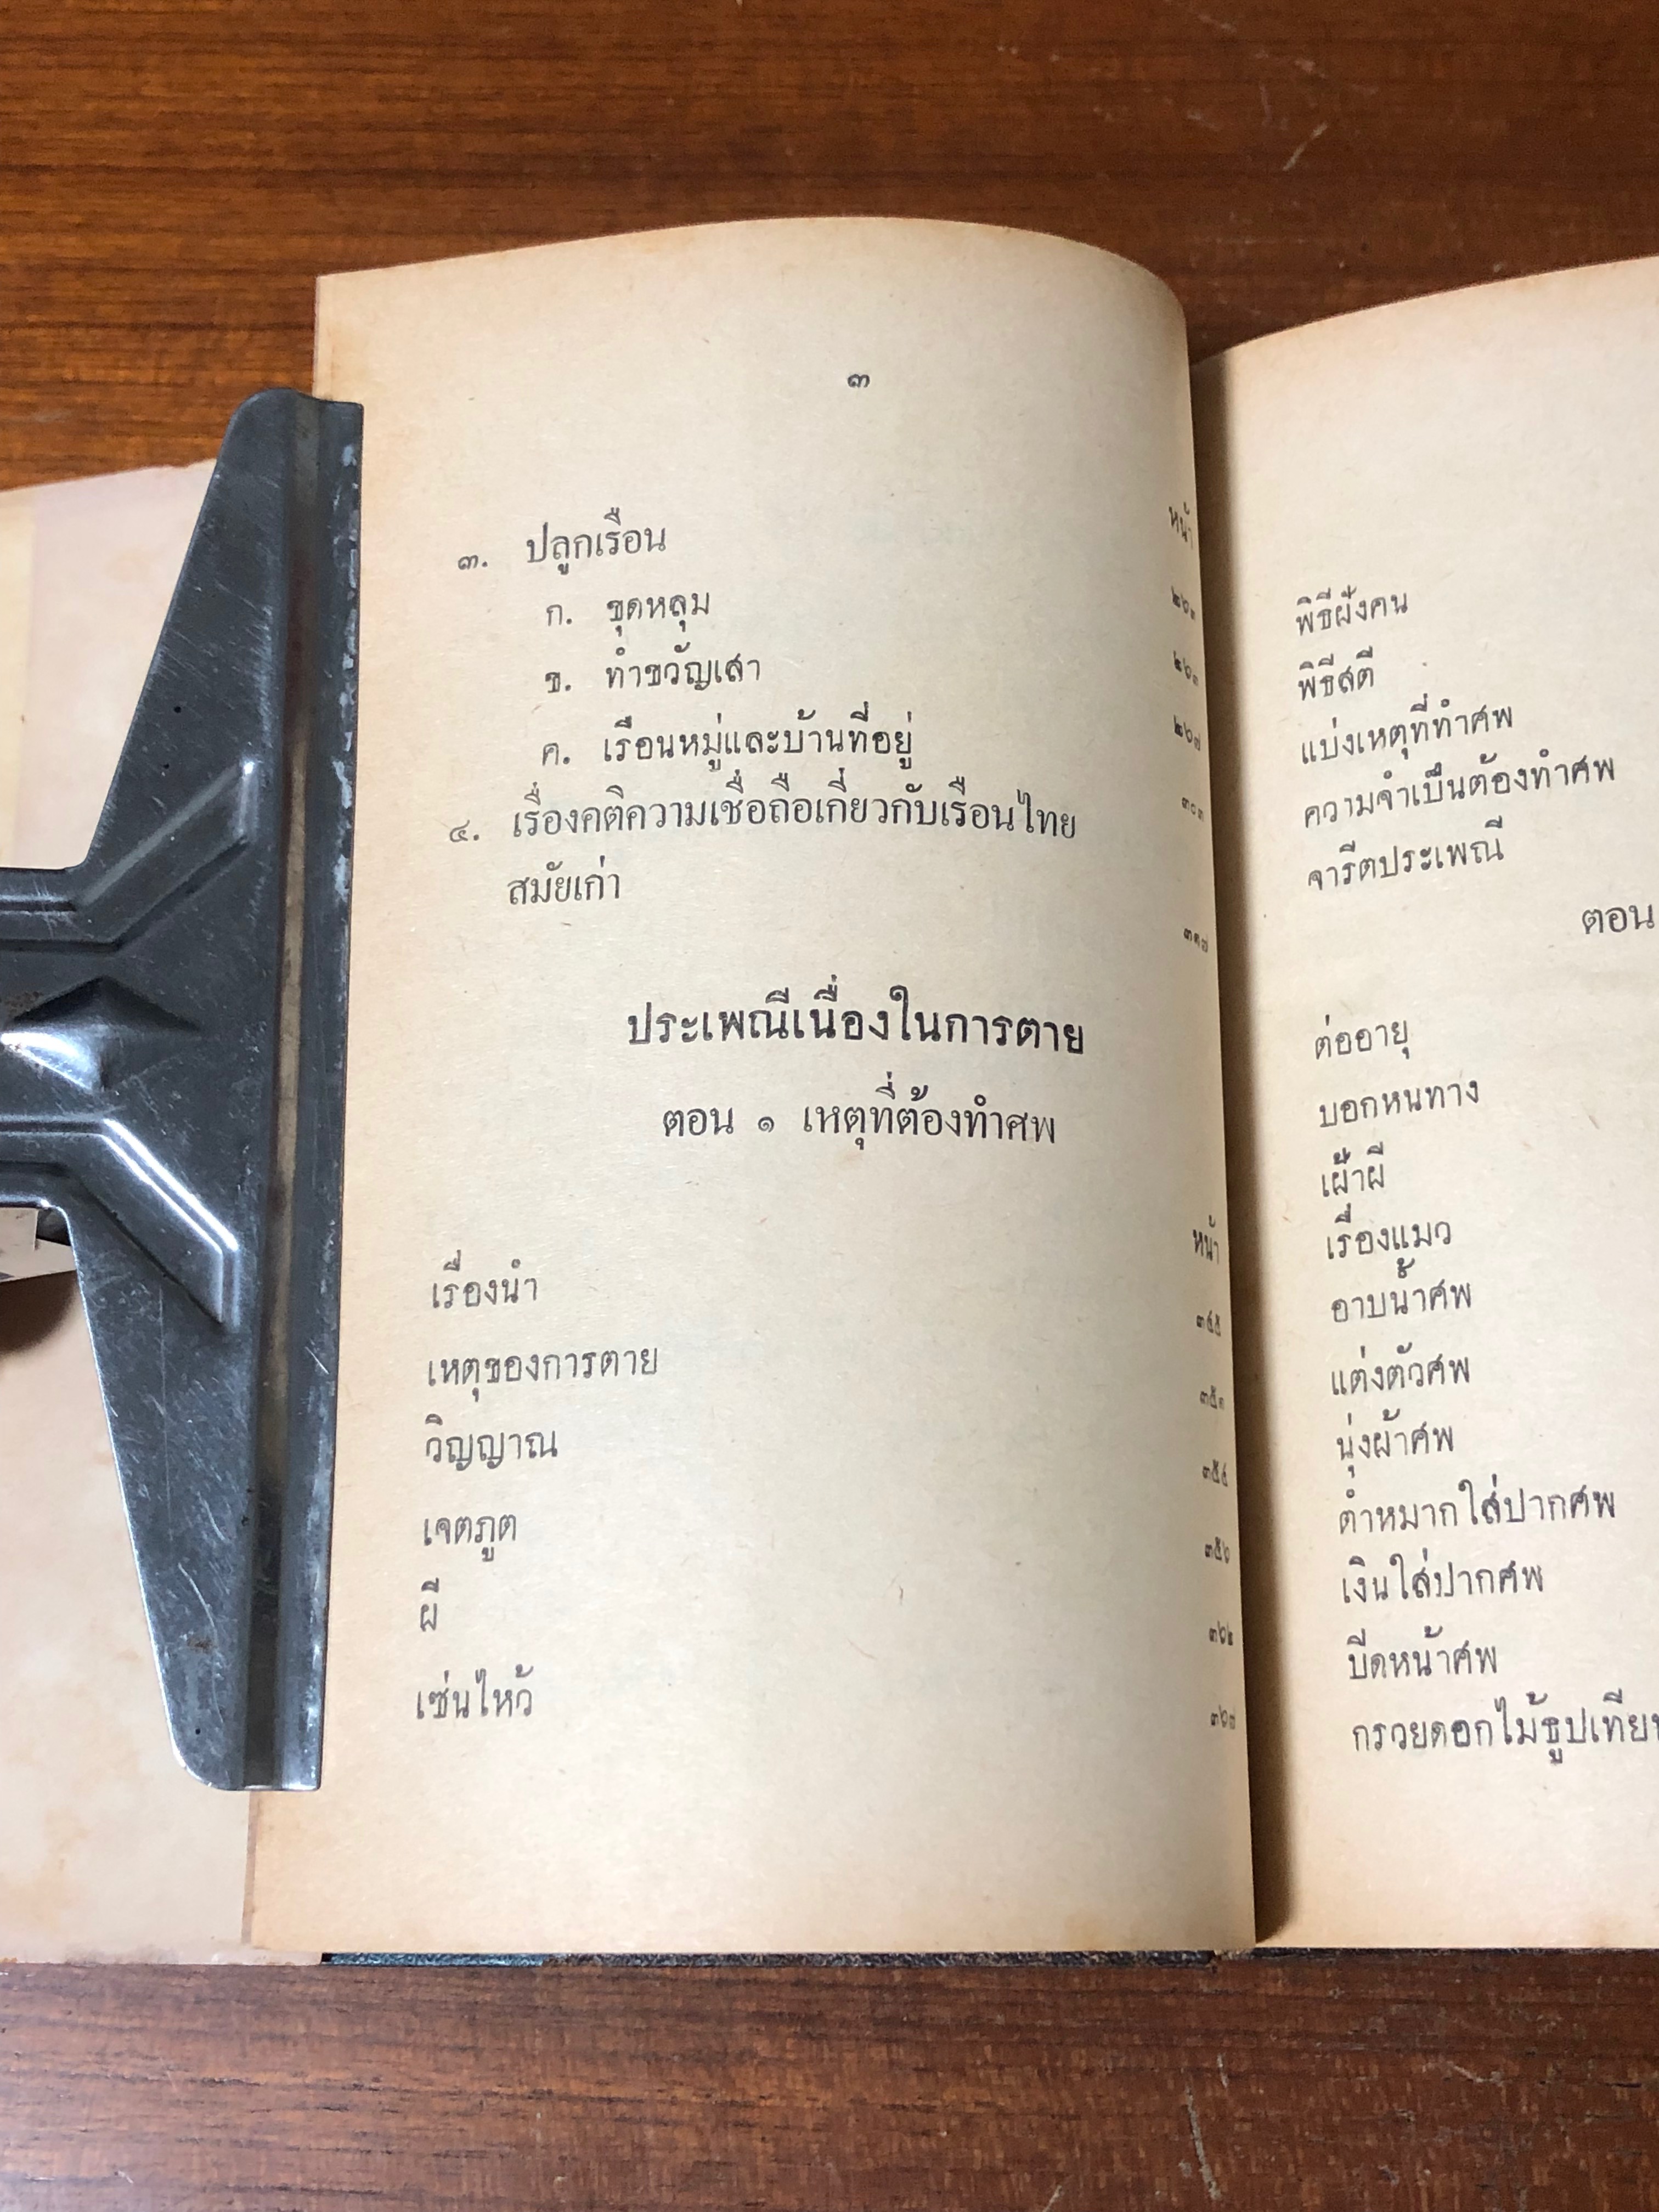 ๓
หน้า
๓. ปลูกเรือน
ก. ขุดหลุม
ข. ทำขวัญเสา
ค. เรือนหมู่และบ้านที่อยู่
๔. เรื่องคติความเชื่อถือเกี่ยวกับเรือนไทย
สมัยเก่า ๓๑๗
ประเพณีเนื่องในการตาย
ตอน ๑ เหตุที่ต้องทำศพ
หน้า
เรื่องนำ ๓๔๕
เหตุของการตาย
วิญญาณ ๓๕๔
เจตภูต ๓๕๖
ผี ๓๖๒
เซ่นไหว้ ๓๖๗
พิธีฝังคน
พิธีสตี
แบ่งเหตุที่ทำศพ
ความจำเป็นต้องทำศพ
จารีตประเพณี
ตอน
ต่ออายุ
บอกหนทาง
เฝ้าผี
เรื่องแมว
อาบน้ำศพ
แต่งตัวศพ
นุ่งผ้าศพ
ตำหมากใส่ปากศพ
เงินใส่ปากศพ
ปิดหน้าศพ
กรวยดอกไม้ธูปเทียน